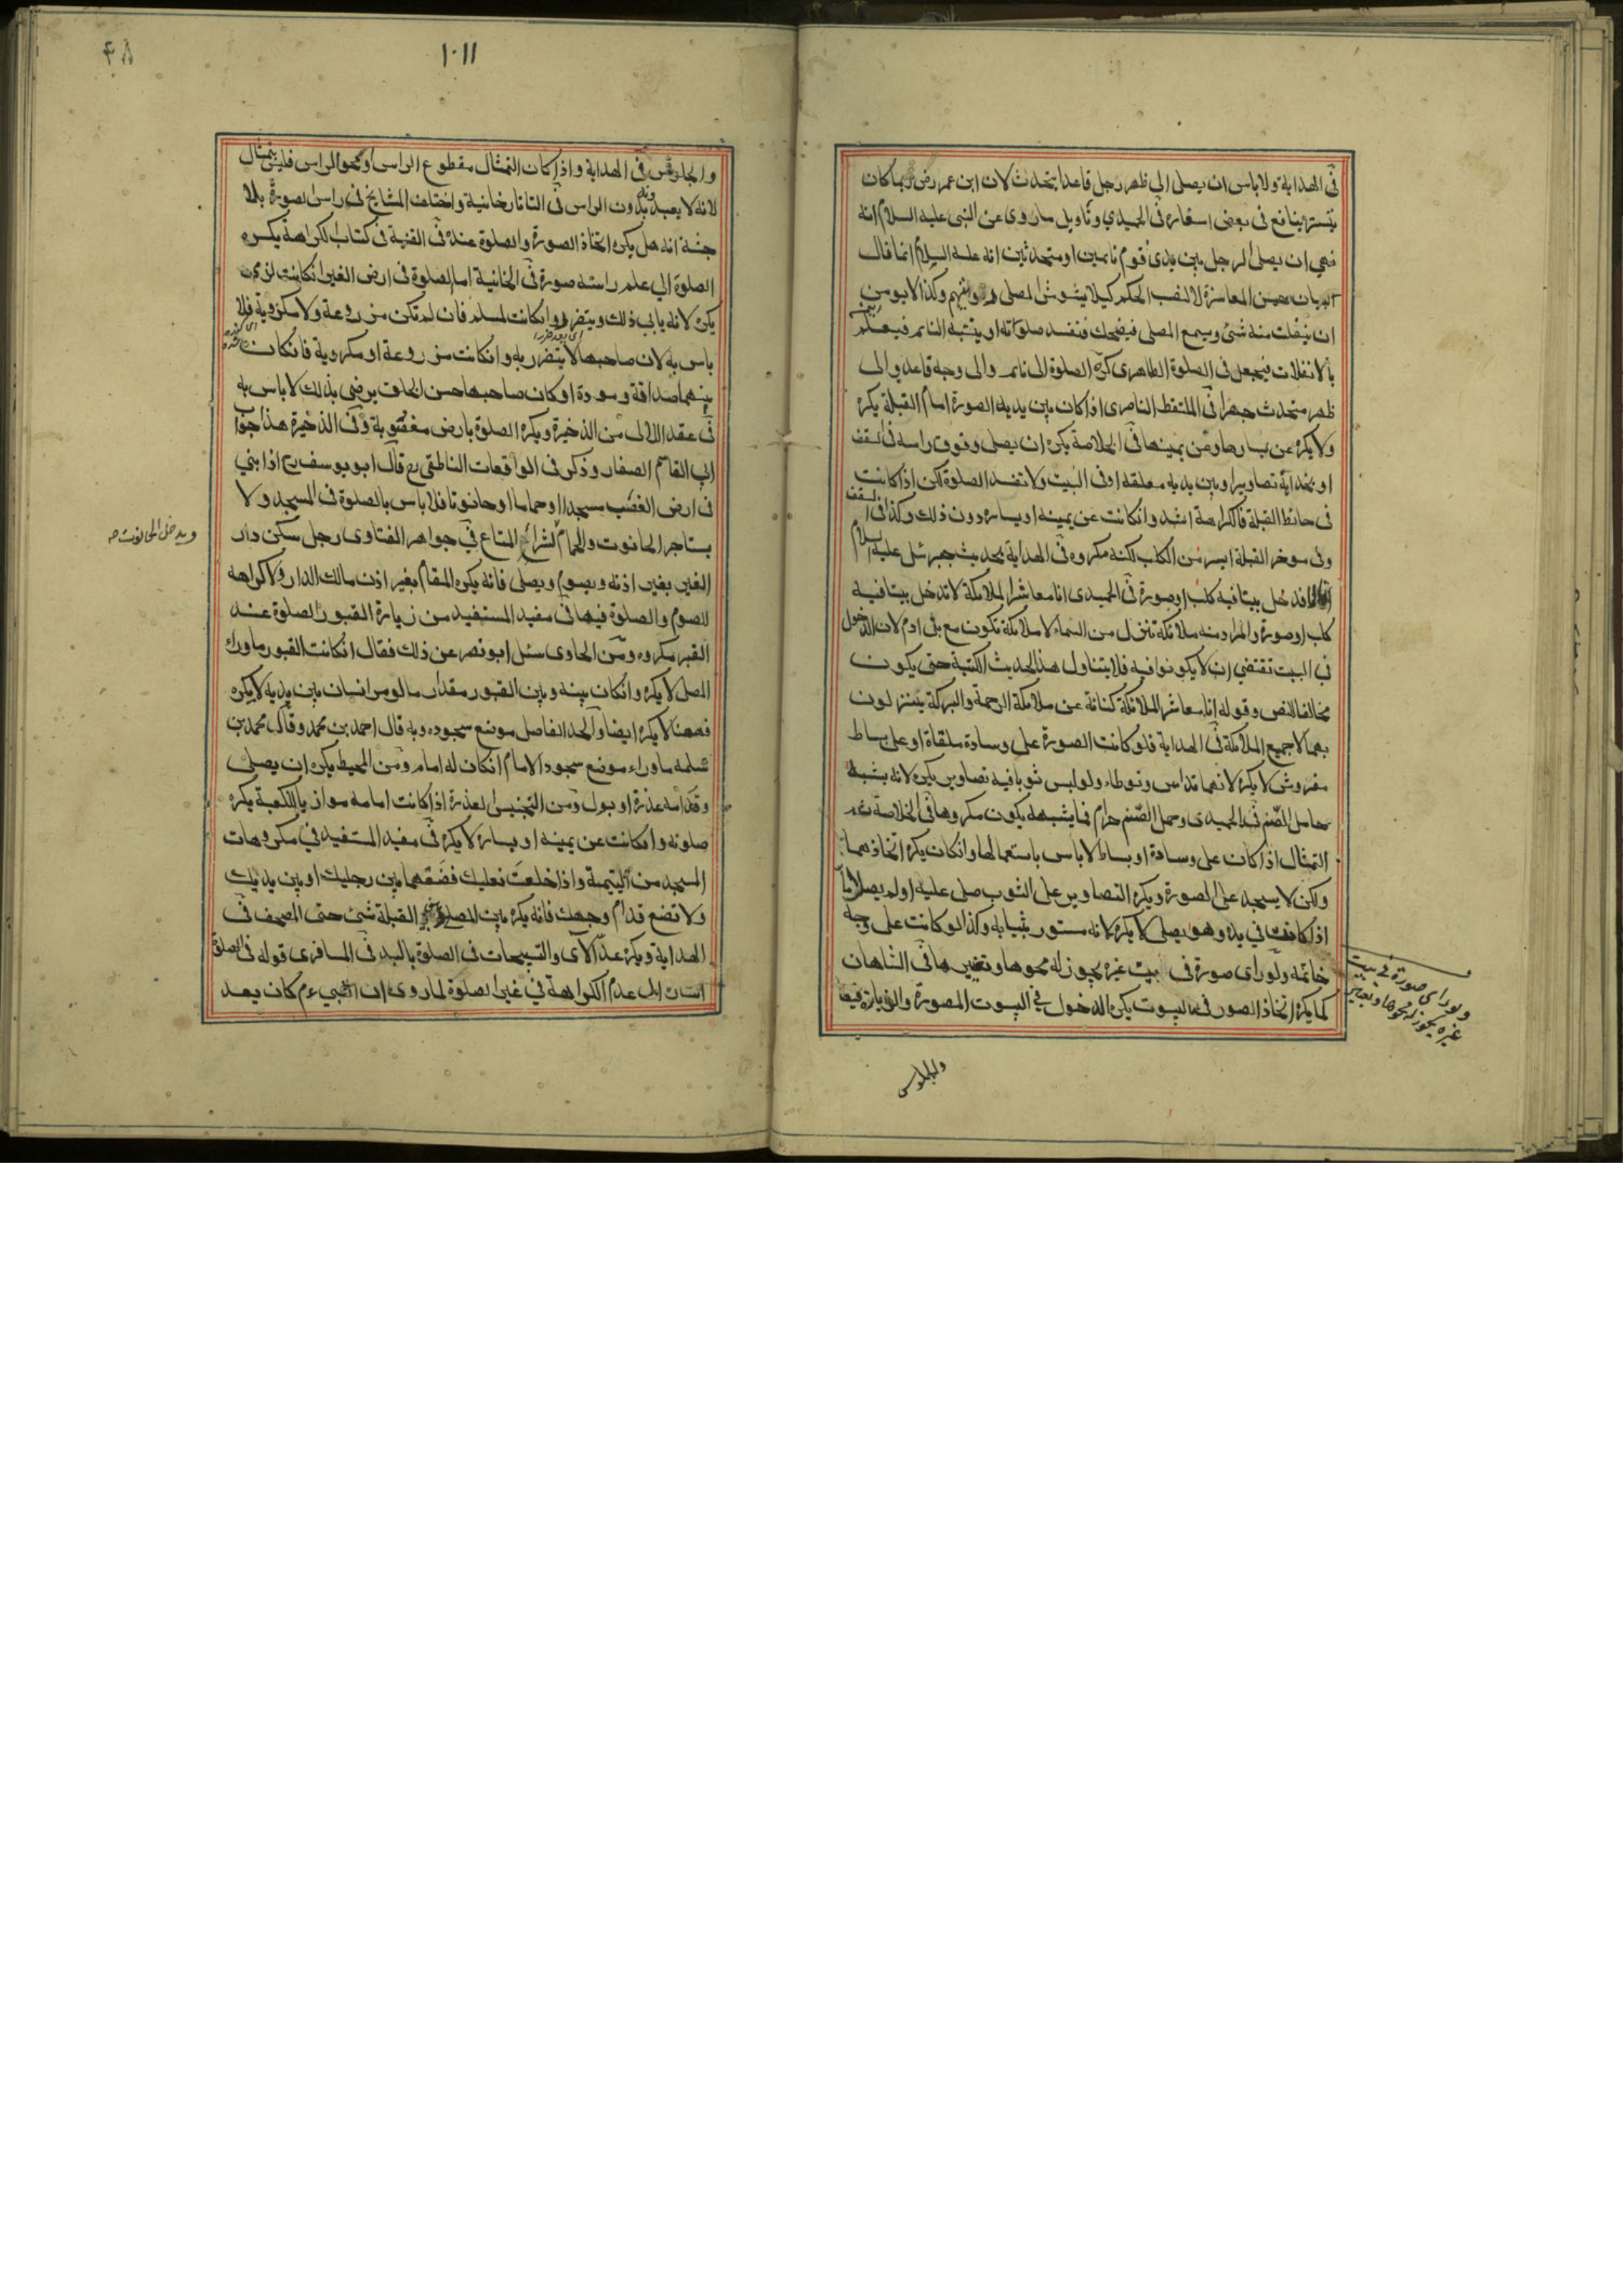 فى الهداية ولا باس ان يصلى الى ظهر رجل قاعد يتحدث لان ابن عمر رض ربما كان
يستتر بنافع فى بعض اسفاره فى الحميدي وتاويل ماروى عن النبى عليه السلام انه
نهي ان يصلى الرجل وبين يدى قوم نائمين او متحدثين انه عليه السلام انما قال
لا لنصب الحكم كيلا يشوش المصلى وكذا لا يومن
ان ينفلت منه شئ ويسمع المصلى فيضحك فتفسد صلوته او ينتبه النائم فيعلم
بالانفلات فيخجل فى الصلوة الظاهرى كره الصلوة الى نائم والى وجه قاعد والى
ظهر متحدث جهرا فى الملتقط الناصرى اذا كان بين يديه الصورة امام القبلة يكره
ولا يكره عن يسارها وعن يمينها فى الخلاصة يكره ان يصلى وفوق راسه فى السقف
او بحذائه تصاوير او بين يديه معلقه او فى البيت ولا تفسد الصلوة لكن اذا كانت
فى حائط القبلة فالكراهة اشد وانكانت عن يمينه او يساره دون ذلك وكذا فى السقف
وفى موخر القبلة ايسر من الكل لكنه مكروه فى الهداية بحديث جبرئيل عليه السلام
لا ندخل بيتا فيه كلب او صورة فى الحميدى انا معاشر الملائكة لا تدخل بيتا فيه
كلب او صورة والمراد منه ملائكة تنزل من السماء لا ملائكة تكون مع بنى ادم لان الدخول
فى البيت تقتضي ان لا يكونوا فيه فلا يتناول هذا الحديث الكتبة حتى يكون
مخالفا للنص وقوله انا معاشر الملائكة كناية عن ملائكة الرحمة والبركة يتنزلون
بهما لا جميع الملائكة فى الهداية فلو كانت الصورة على وسادة ملقاة او على بساط
مفروش لا يكره لانهما تداس وتوطاء ولو لبس ثوبا فيه تصاوير يكره لانه يشبه
حامل الصنم فى الحميدى وحمل الصنم حرام فما يشبهه يكون مكروها فى الخلاصة ثم
التمثال اذا كان على وسادة او بساط لا باس باستعمالها وانكان يكره اتخاذهما
ولكن لا يسجد على الصورة ويكره التصاوير على الثوب صلى عليه او لم يصل اما
اذا كانت في يده وهو يصلى لا يكره لانه مستور بثيابه وكذا لو كانت على وجه
خاتمه ولو راى صورة فى بيت غيره يجوز له محوها وتغييرها فى الشاهان
كما يكره اتخاذ الصور فى البيوت يكره الدخول في البيوت المصورة والزيارة فيها
ولو راى صورة في بيت
غيره يجوز له محوها وتغيير
وللجلوس
١٠١١
٤٨
والجلوس فى الهداية واذا كان التمثال مقطوع الراس او ممحو الراس فليس بتمثال
لانه لا يعبد بدون الراس فى التاتارخانية واختلف المشايخ فى راس الصورة بلا
جثة انه هل يكره اتخاذ الصورة والصلوة عنده فى القنية فى كتاب الكراهة يكره
الصلوة الي علم راسه صورة فى الخانية اما الصلوة فى ارض الغير انكانت لذمى
يكره لانه يابى ذلك ويتضرر وانكانت لمسلم فان لم تكن مزروعة ولا مكروبة فلا
باس به لان صاحبها لا يتضرر به وانكانت مزروعة او مكروبة فانكان
بينهما صداقة ومودة او كان صاحبها حسن الخلق يرضى بذلك لا باس به
فى عقد اللالى من الذخيرة ويكره الصلوة بارض مغصوبة وفى الذخيرة هذا جواب
ابي القاسم الصفار وذكر فى الواقعات الناطقى رع قال ابو يوسف رح اذا بني
فى ارض الغصب مسجدا او حماما او حانوتا فلا باس بالصلوة فى المسجد ولا
يستاجر الحانوت والحمام لشراء المتاع في جواهر الفتاوى رجل سكن دار
ويدخل الحانوت صح
الغير بغير اذنه ويصوم ويصلى فانه يكره المقام بغير اذن مالك الدار ولا كراهة
للصوم والصلوة فيها فى مفيد المستفيد من زيارة القبور الصلوة عند
القبر مكروه ومن الحاوى سئل ابو نصر عن ذلك فقال انكانت القبور ماوراء
المصلى لا يكره وانكان بينه وبين القبور مقدار ما لو مر انسان بين يديه لا يكره
فههنا لا يكره ايضا والحد الفاصل موضع سجوده وبه قال احمد بن محمد وقال محمد بن
سلمه ماوراء موضع سجود الامام انكان له امام ومن المحيط يكره ان يصلى
وقدامه عذرة او بول ومن التجنيس العذرة اذا كانت امامه موازيا للكعبة يكره
صلوته وانكانت عن يمينه او يساره لا يكره فى مفيد المستفيد في مكروهات
المسجد من اليتيمة واذا خلعت نعليك فضعهما بين رجليك او بين يديك
ولا تضع قدام وجهك فانه يكره بين المصلى القبلة شئ حتى المصحف فى
الهداية ويكره عد الآى والتسبيحات فى الصلوة باليد فى المسافرى قوله فى الصلوة
اشارة الى عدم الكراهة في غير الصلوة لما روى ان النبي ءم كان يعد